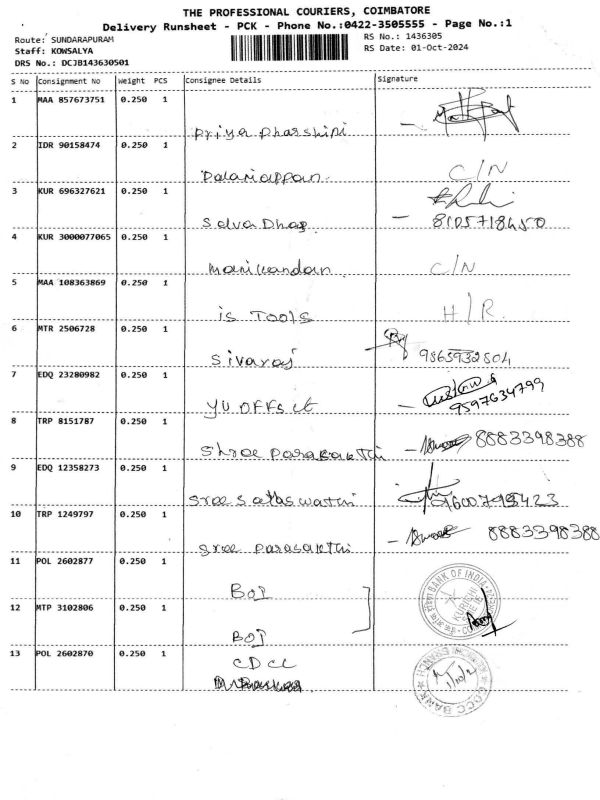 THE PROFESSIONAL COURIERS, COIMBATORE
Delivery Runsheet - PCK - Phone No.:0422-3505555 - Page No.:1
Route: SUNDARAPURAM
Staff: KOWSALYA
DRS No.: DCJB143630501
RS No.: 1436305
RS Date: 01-Oct-2024
S No Consignment No Weight PCS Consignee Details Signature
1 MAA 857673751 0.250 1
Priya Dharshini
2 IDR 90158474 0.250 1
Palaniappan. C/N
3 KUR 696327621 0.250 1
Selva Dhas. 8105718450
4 KUR 3000077065 0.250 1
Manikandan. C/N
5 MAA 108363869 0.250 1
is Tools H/R.
6 MTR 2506728 0.250 1
Sivaraj 9865932804
7 EDQ 23280982 0.250 1
YU OFFSet 9597634799
8 TRP 8151787 0.250 1
Shree Parasakthi 8883398388
9 EDQ 12358273 0.250 1
Sree Saraswathi
10 TRP 1249797 0.250 1
Sree Parasakthi 8883398388
11 POL 2602877 0.250 1
BOI
BANK OF INDIA
12 MTP 3102806 0.250 1
BOI
13 POL 2602870 0.250 1
CDCC